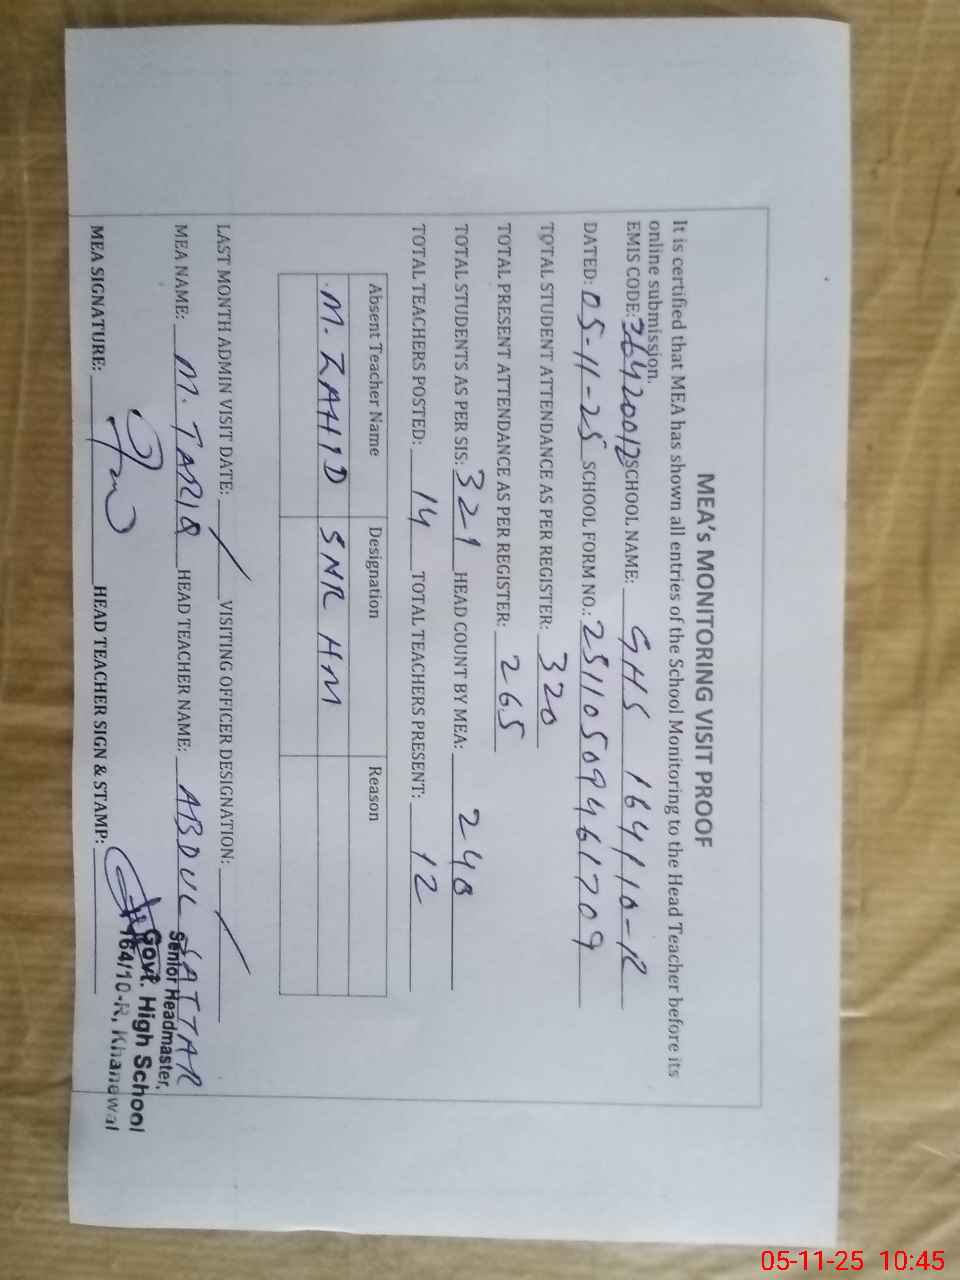 MEA's MONITORING VISIT PROOF
It is certified that MEA has shown all entries of the School Monitoring to the Head Teacher before its
online submission.
EMIS CODE: 36420012 SCHOOL NAME: GHS 164/10-R
DATED: 05-11-25 SCHOOL FORM NO.: 25110509461709
TOTAL STUDENT ATTENDANCE AS PER REGISTER: 320
TOTAL PRESENT ATTENDANCE AS PER REGISTER: 265
TOTAL STUDENTS AS PER SIS: 321 HEAD COUNT BY MEA: 248
TOTAL TEACHERS POSTED: 14 TOTAL TEACHERS PRESENT: 12
Absent Teacher Name Designation Reason
M. ZAHID SNR HM
LAST MONTH ADMIN VISIT DATE: / VISITING OFFICER DESIGNATION: /
MEA NAME: M. TARIQ HEAD TEACHER NAME: ABDUL SATTAR
MEA SIGNATURE: HEAD TEACHER SIGN & STAMP:
Senior Headmaster,
Govt. High School
164/10-R, Khanewal
05-11-25 10:45